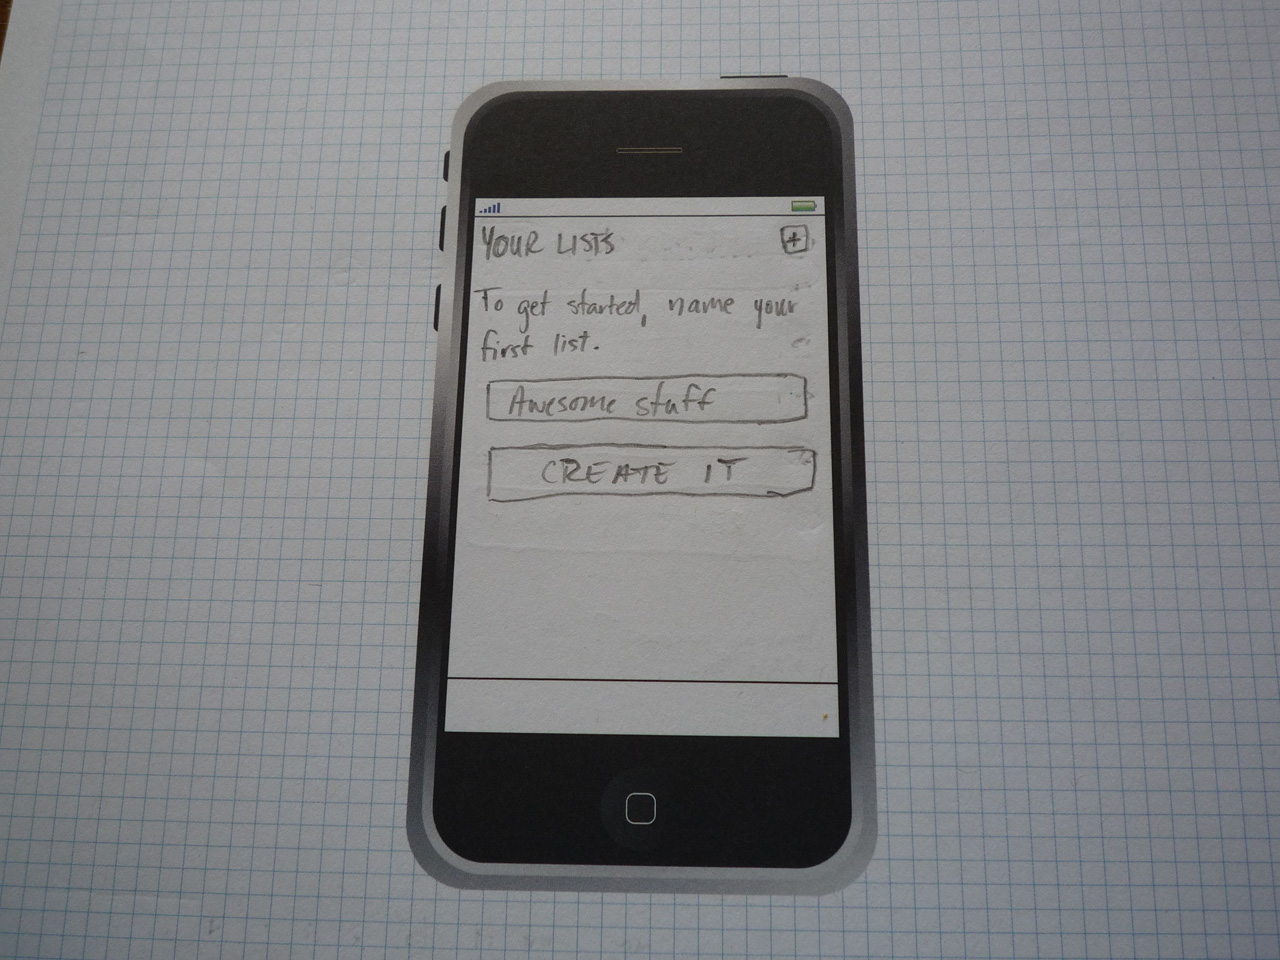 YOUR LISTS +
To get started, name your
first list.
Awesome stuff
CREATE IT